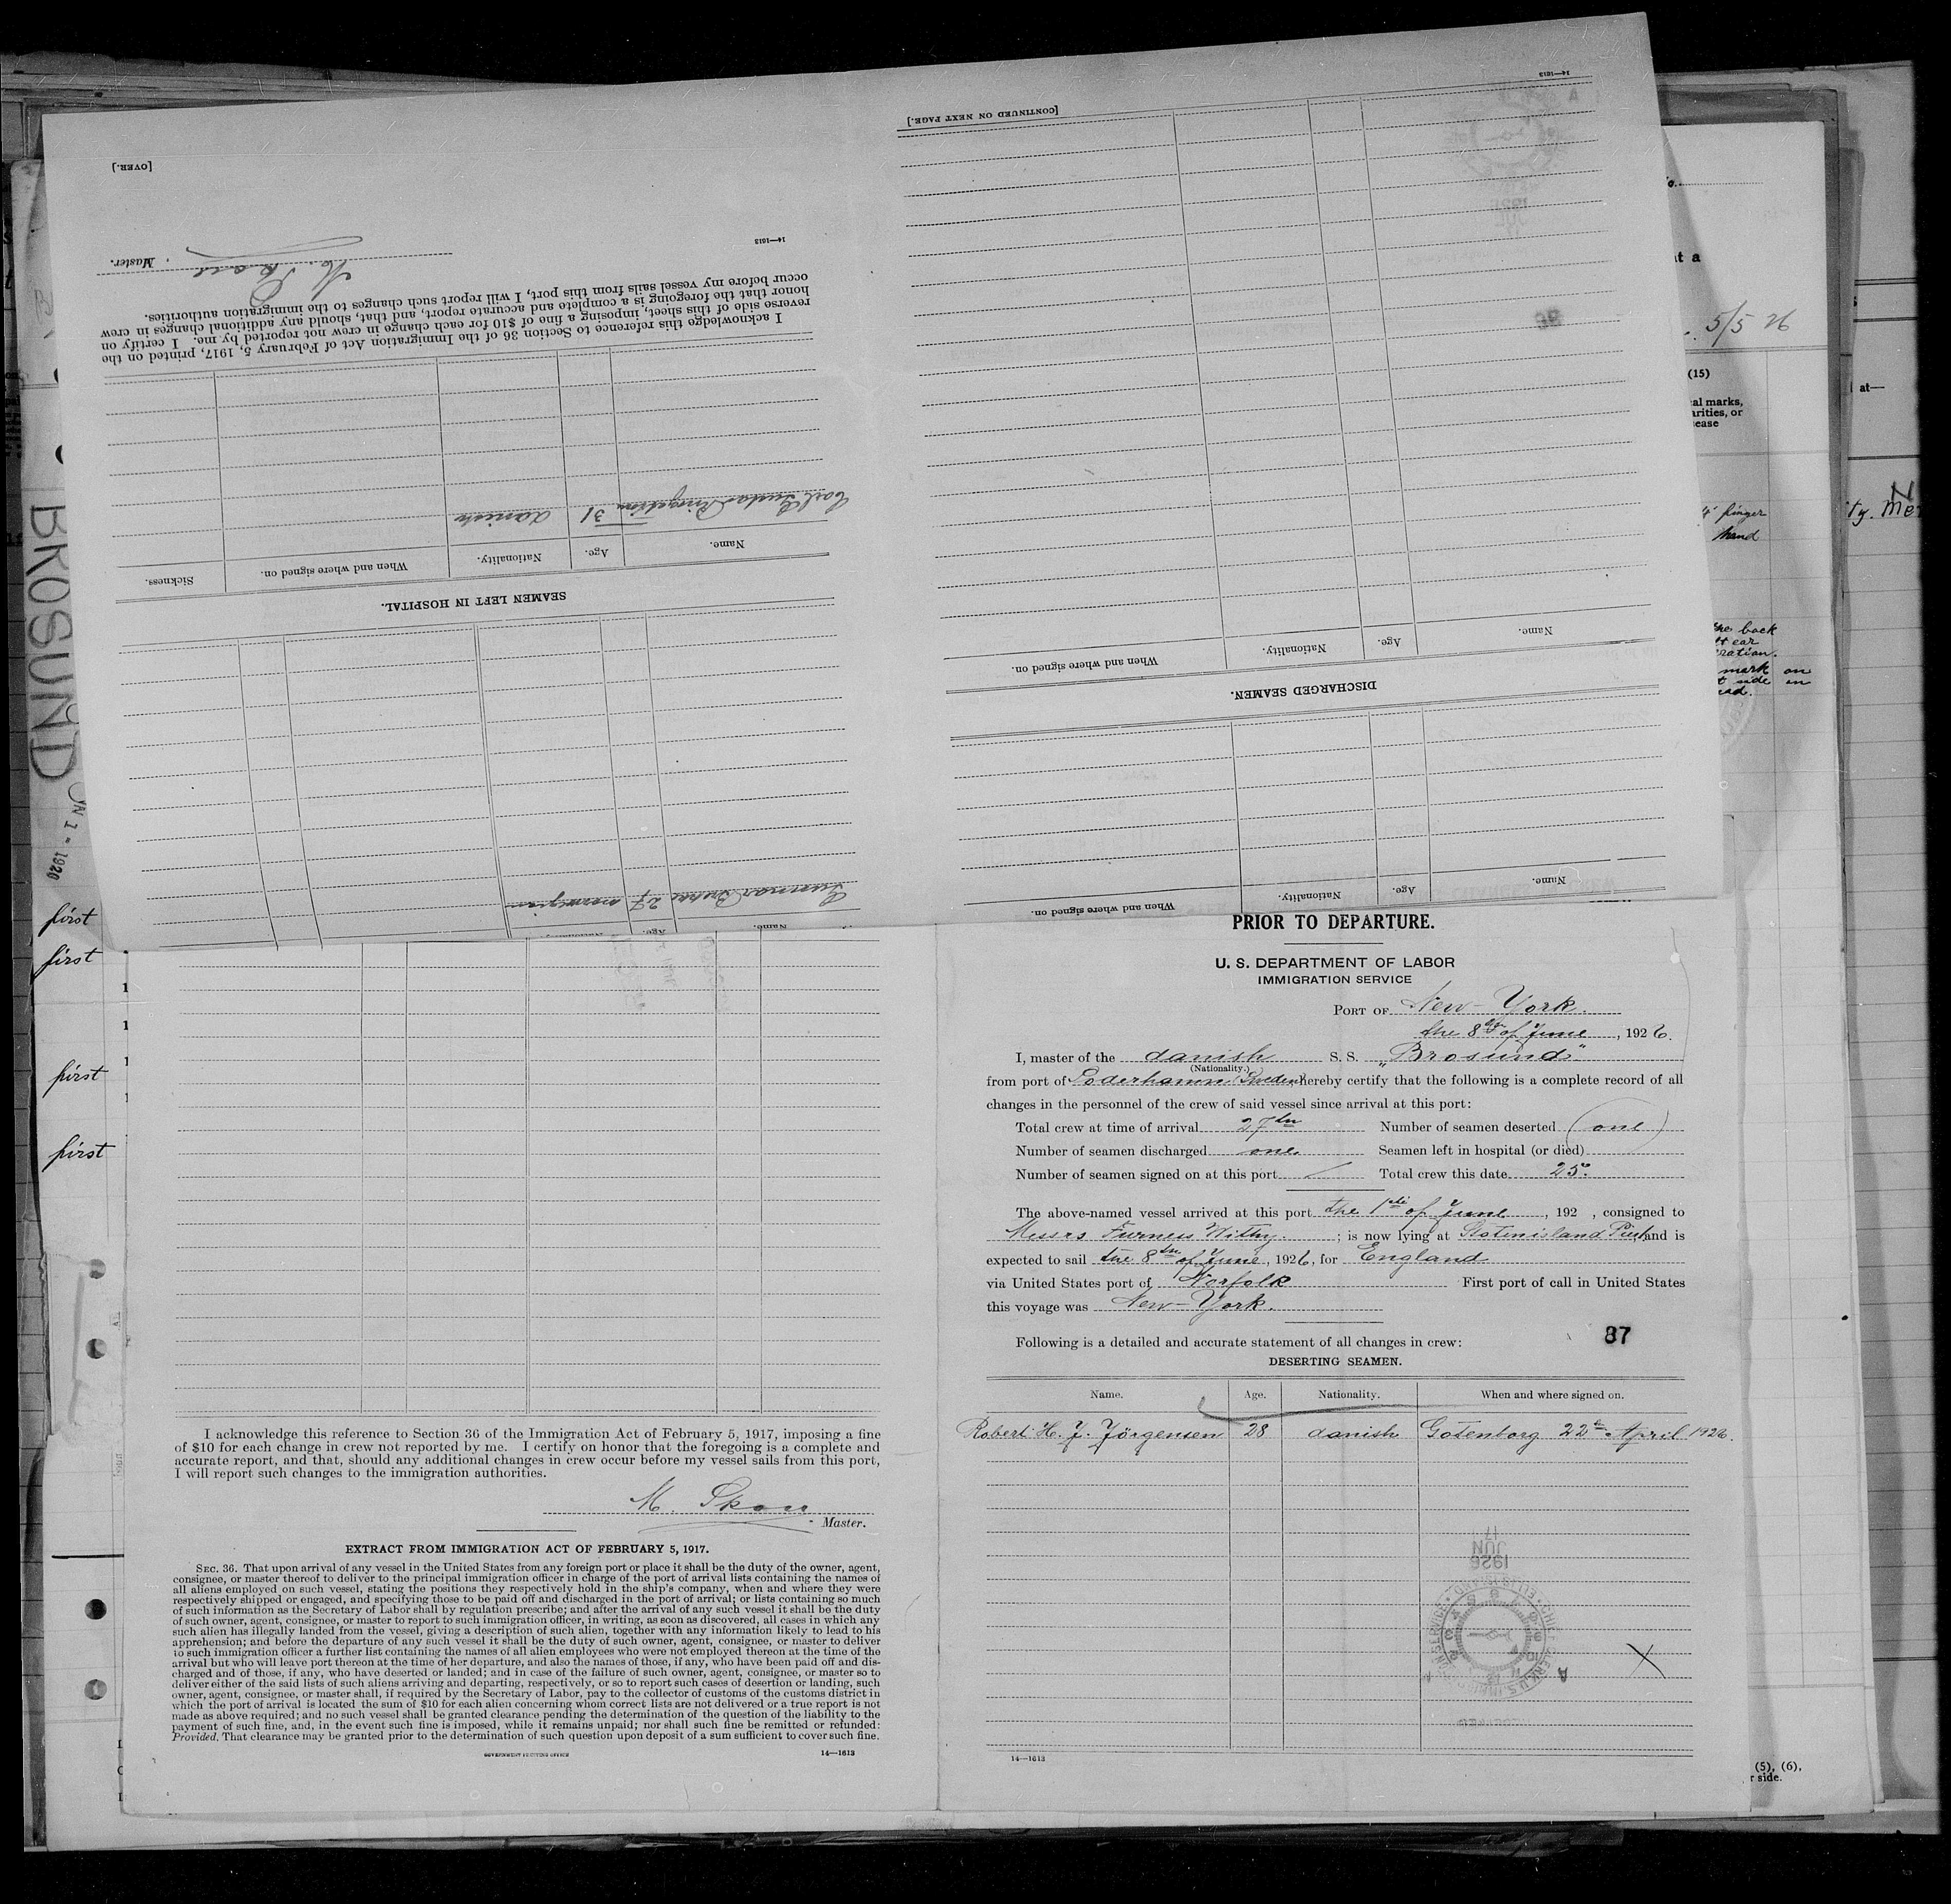 [OVER.]
14—1613
Master.
M. Skou
I acknowledge this reference to Section 36 of the Immigration Act of February 5, 1917, printed on the
reverse side of this sheet, imposing a fine of $10 for each change in crew not reported by me. I certify on
honor that the foregoing is a complete and accurate report, and that, should any additional changes in crew
occur before my vessel sails from this port, I will report such changes to the immigration authorities.
31 danish
Name. Age. Nationality. When and where signed on. Sickness.
SEAMEN LEFT IN HOSPITAL.
Gunnar 27 norwegian
Name. Age. Nationality.
14—1613
[CONTINUED ON NEXT PAGE.]
38
Name. Age. Nationality. When and where signed on.
DISCHARGED SEAMEN.
Name. Age. Nationality. When and where signed on.
BROSUND
first
first
first
first
5/5 26
(15)
at—
finger
hand
the back
ear
mark on
side in
(5), (6),
side.
PRIOR TO DEPARTURE.
U. S. DEPARTMENT OF LABOR
IMMIGRATION SERVICE
PORT OF New-York.
the 8th of June, 1926.
I, master of the danish S. S. "Brosund"
(Nationality.)
from port of Soderhamn (Sweden) hereby certify that the following is a complete record of all
changes in the personnel of the crew of said vessel since arrival at this port:
Total crew at time of arrival 27 Number of seamen deserted (one)
Number of seamen discharged one. Seamen left in hospital (or died)
Number of seamen signed on at this port / Total crew this date 25.
The above-named vessel arrived at this port the 1st of June, 192 , consigned to
Messrs Furness Withy. ; is now lying at Statenisland Pier, and is
expected to sail the 8th of June, 1926, for England
via United States port of Norfolk First port of call in United States
this voyage was New-York.
Following is a detailed and accurate statement of all changes in crew:
87
DESERTING SEAMEN.
Name. Age. Nationality. When and where signed on.
Robert H. J. Jörgensen 28 danish Gotenborg 22th April 1926.
17
JUN
1926
X
14—1613
I acknowledge this reference to Section 36 of the Immigration Act of February 5, 1917, imposing a fine
of $10 for each change in crew not reported by me. I certify on honor that the foregoing is a complete and
accurate report, and that, should any additional changes in crew occur before my vessel sails from this port,
I will report such changes to the immigration authorities.
M. Skou
Master.
EXTRACT FROM IMMIGRATION ACT OF FEBRUARY 5, 1917.
SEC. 36. That upon arrival of any vessel in the United States from any foreign port or place it shall be the duty of the owner, agent,
consignee, or master thereof to deliver to the principal immigration officer in charge of the port of arrival lists containing the names of
all aliens employed on such vessel, stating the positions they respectively hold in the ship's company, when and where they were
respectively shipped or engaged, and specifying those to be paid off and discharged in the port of arrival; or lists containing so much
of such information as the Secretary of Labor shall by regulation prescribe; and after the arrival of any such vessel it shall be the duty
of such owner, agent, consignee, or master to report to such immigration officer, in writing, as soon as discovered, all cases in which any
such alien has illegally landed from the vessel, giving a description of such alien, together with any information likely to lead to his
apprehension; and before the departure of any such vessel it shall be the duty of such owner, agent, consignee, or master to deliver
to such immigration officer a further list containing the names of all alien employees who were not employed thereon at the time of the
arrival but who will leave port thereon at the time of her departure, and also the names of those, if any, who have been paid off and dis-
charged and of those, if any, who have deserted or landed; and in case of the failure of such owner, agent, consignee, or master so to
deliver either of the said lists of such aliens arriving and departing, respectively, or so to report such cases of desertion or landing, such
owner, agent, consignee, or master shall, if required by the Secretary of Labor, pay to the collector of customs of the customs district in
which the port of arrival is located the sum of $10 for each alien concerning whom correct lists are not delivered or a true report is not
made as above required; and no such vessel shall be granted clearance pending the determination of the question of the liability to the
payment of such fine, and, in the event such fine is imposed, while it remains unpaid; nor shall such fine be remitted or refunded:
Provided, That clearance may be granted prior to the determination of such question upon deposit of a sum sufficient to cover such fine.
GOVERNMENT PRINTING OFFICE
14—1613